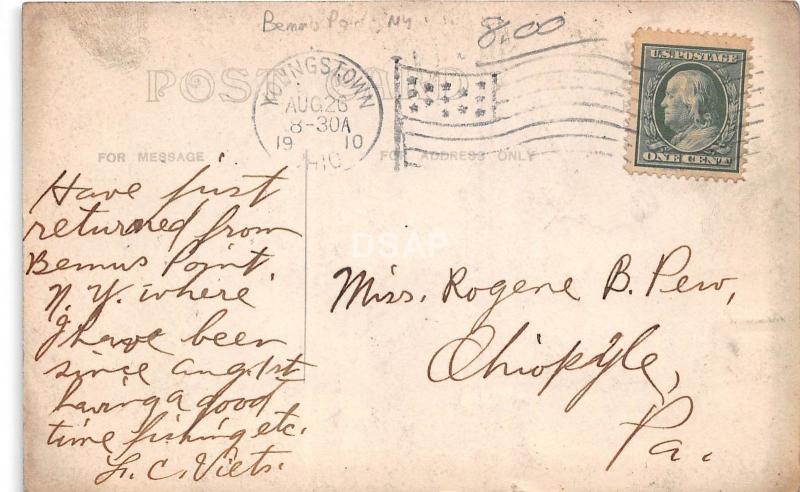 Bemus Point, NY
8.00
POST CARD
U.S. POSTAGE
ONE CENT
YOUNGSTOWN
AUG 26
8-30A
19 10
OHIO
FOR MESSAGE
FOR ADDRESS ONLY
Have just
returned from
Bemus Point,
N.Y. where
I have been
since aug. 1st
having a good
time fishing etc.
L. C. Viets.
Miss. Rogene B. Pew,
Ohiopyle,
Pa.
DSAP